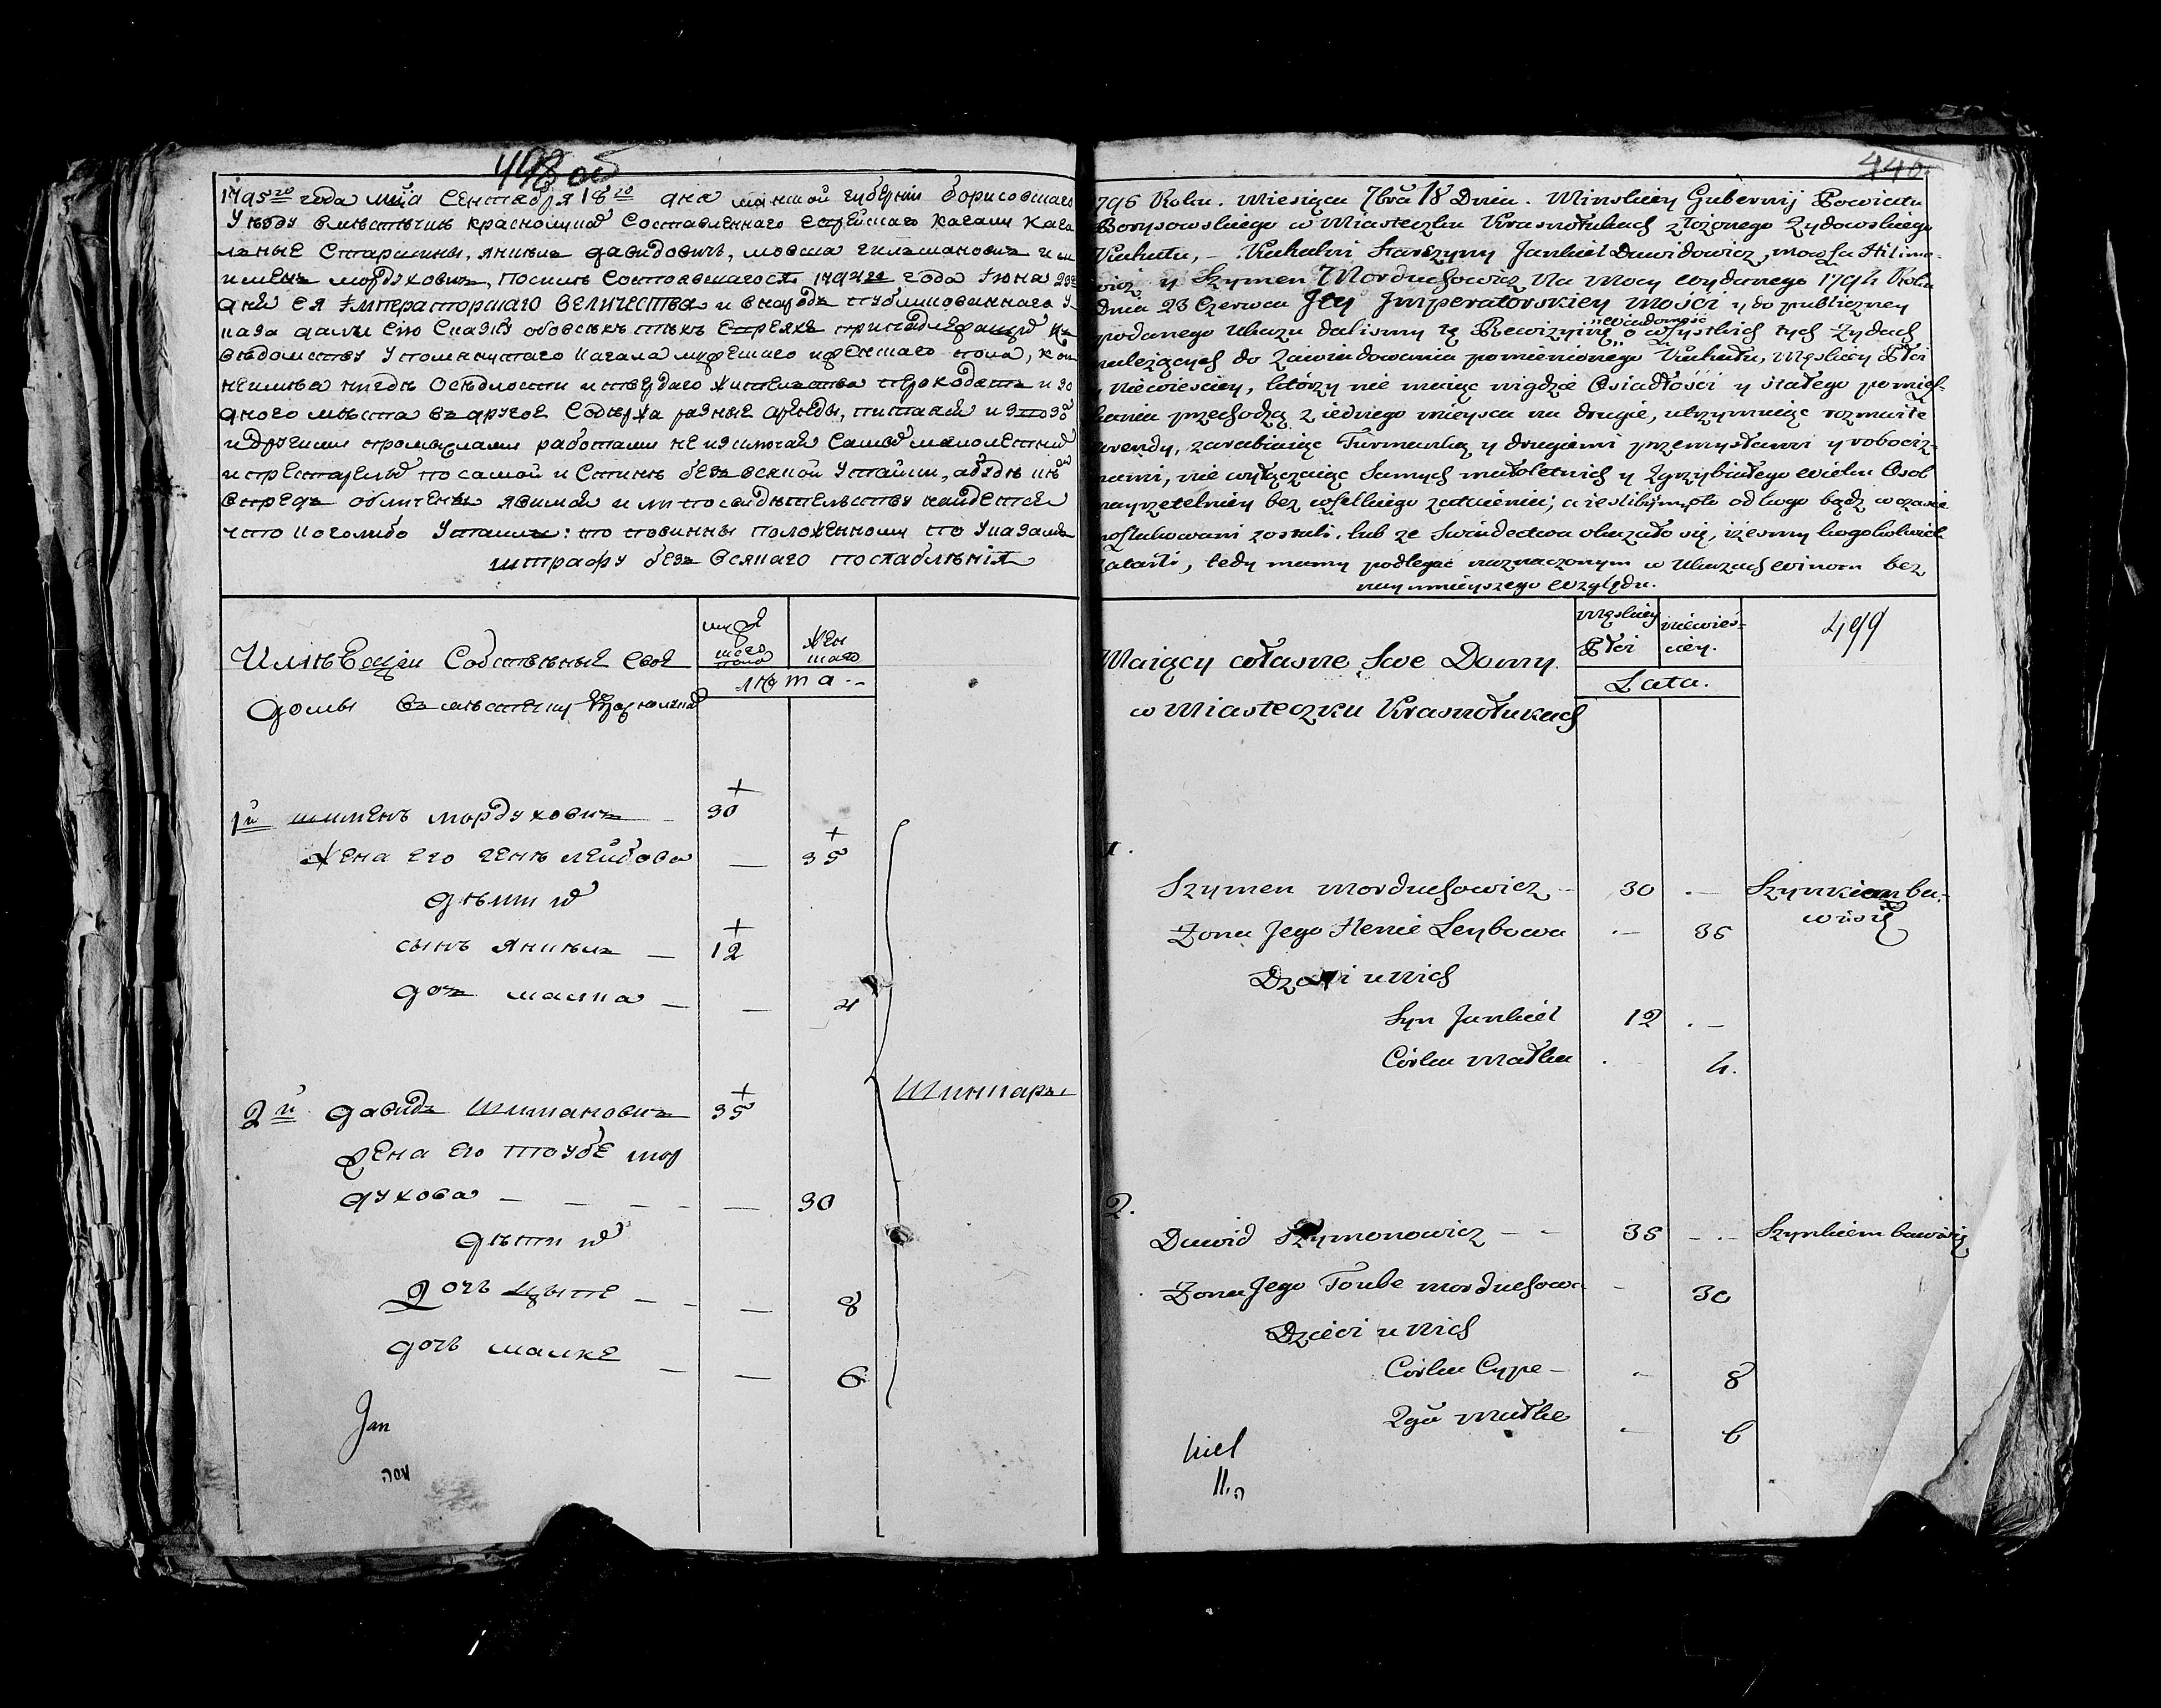 498 об
1795го года мца Сентября 18го дня минской губернии борисовскаго
Уѣзду вмѣстѣчкѣ краснолуках Составленнаго еврейскаго кагалу кага
льные Старшины, янкель давидовичъ, мовша гилманович и ши
именъ мордухович, посилѣ Состоявшагося 1794го года Июня 23го
дня ея Императорскаго величества и внародъ публикованнаго у
каза дали Сию Сказку обовсѣхъ тѣхъ Евреяхъ принадлежащих къ
вѣдомству Упомянутаго кагала мужескаго иженскаго пола, кои
неимѣя нигдѣ Осѣдлости и твердаго жительства переходятъ из о
дного мѣста въ другое Содержа разные аренды, питаясь извозо
идругими промыслами работами не изключая самых малолетних
и престарелых по самой истиннѣ безъ всякой Утайки, абудѣ мы
впредъ обличены явимся или по свидѣтельству найдется
что коголибо Утаили: то повинны положенному по Указамъ
штрафу безъ всякаго послаблѣнія
Имѣющіи Собственные свои
домы въ мѣстечку Краснолуках
мужескаго пола
женскаго
лѣта
1й шименъ мордухович 30
жена его генѣ лейбова — 35
дѣти их
сынъ янкель — 12
доч малка — — 4
2й давидъ Шиманович 35
Жена его тоубе мор
духова — — — — — 30
дѣти их
Дочь цыпе — — — 8
дочь малке — — 6
Шинкаръ
Jan
משה
440
796 Roku. Miesiąca 7bra 18 Dnia. Minskiey Gubernij Powiatu
Borysowskiego w Miasteczku Krasnołukach złożonego Żydowskiego
Kahału, — Kahalni Starszyny Jankiel Dawidowicz, Mowsza Hilima-
wicz y Szymen Morduchowicz Na Mocy wydanego 1794 Roku
Dnia 23 Czerwca Jey Jmperatorskiey Mości y do publiczney
wiadomość
podanego Ukazu dalismy tę Rewizyinę o wszystkich tych Żydach
należących do Zawiadowania pomienionego Kahału, Męskiey Płci
y Niewiesciey, którzy nie maiąc nigdzie Osiadłości y stałego pomiesz-
kania przechodzą z iednego mieysca na drugie, utrzymuiąc rozmaite
arendy, zarabiaiąc Furmanką y drugiemi przemysłami y robociz-
nami, nie wyłączaiąc Samych małoletnich y Zgrzybiałego wieku Osob
nayrzetelniey bez wszelkiego zataienia; a ieslibyśmy to od kogo bądz w czasie
poszlakowani zostali, lub ze Swiadectwa okazało się, iżesmy kogokolwiek
zataili, tedy mamy podlegać naznaczonym w Ukazach winom bez
naymnieyszego względu.
Maiący własne Swe Domy
w Miasteczku Krasnołukach
Męskiey Płci
niewieś-
ciey.
Lata.
499
1.
Szymen Morduchowicz — 30 . — Szynkiem ba-
wi się
Żona Jego Henie Leybowa . — 35
Dzieci u Nich
Syn Jankiel 12 . —
Córka Małka . 4.
2.
Dawid Szymonowicz — — 35 — . — Szynkiem bawi się
Żona Jego Toube Morduchowa — 30
Dzieci u Nich
Córka Cype — . — 8
2ga Małke . — 6
kiel